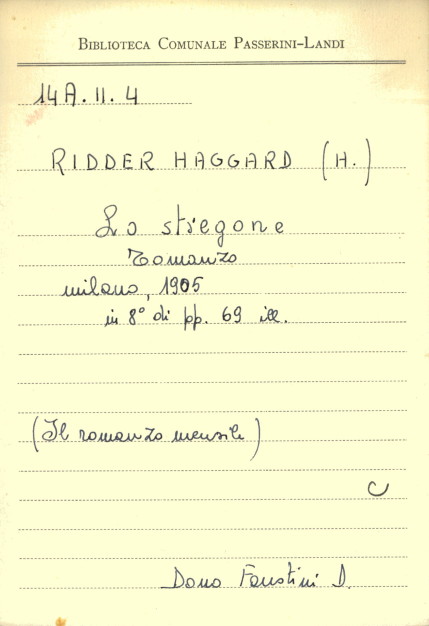 BIBLIOTECA COMUNALE PASSERINI-LANDI
14A.II.4
RIDDER HAGGARD (H.)
Lo stregone
Romanzo
milano, 1905
in 8° di pp. 69 ill.
(Il romanzo mensile)
C
Dono Faustini D.